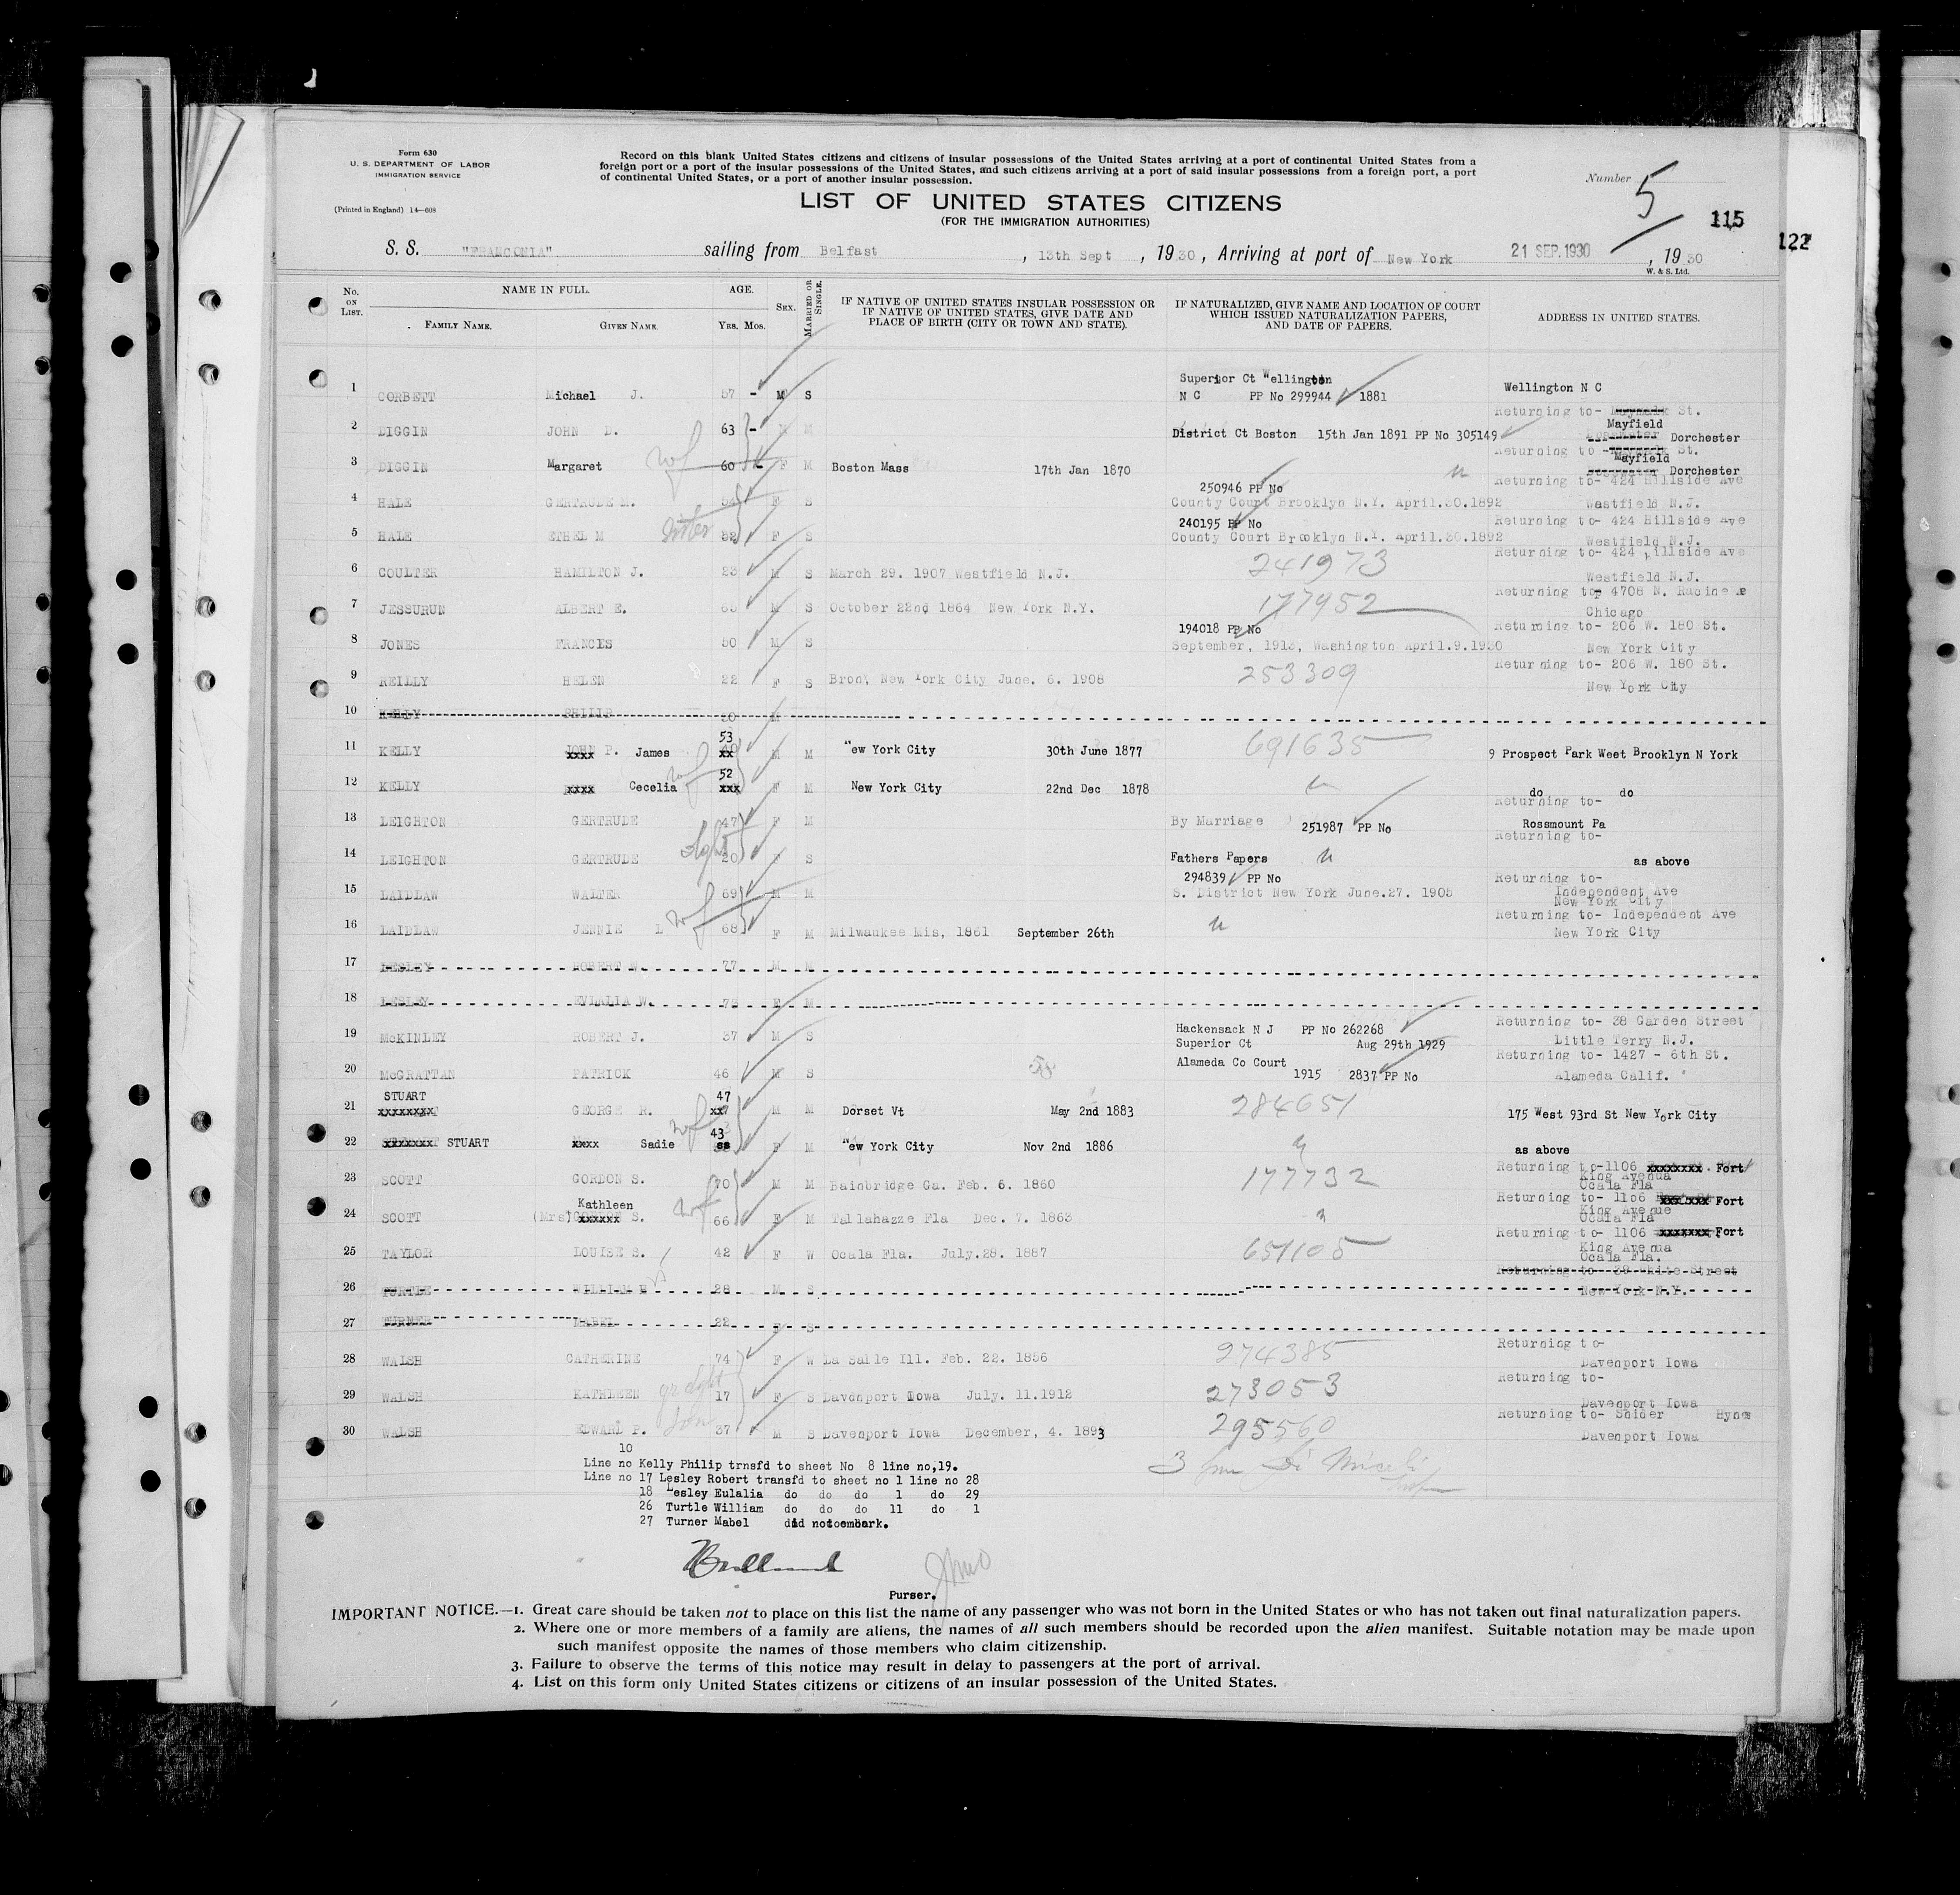 Form 630
U. S. DEPARTMENT OF LABOR
IMMIGRATION SERVICE
(Printed in England) 14—608
Record on this blank United States citizens and citizens of insular possessions of the United States arriving at a port of continental United States from a
foreign port or a port of the insular possessions of the United States, and such citizens arriving at a port of said insular possessions from a foreign port, a port
of continental United States, or a port of another insular possession.
Number 5
115
122
LIST OF UNITED STATES CITIZENS
(FOR THE IMMIGRATION AUTHORITIES)
S. S. "FRANCONIA" sailing from Belfast, 13th Sept, 1930, Arriving at port of New York 21 SEP. 1930, 1930
W. & S. Ltd.
No. ON LIST. NAME IN FULL. FAMILY NAME. GIVEN NAME. AGE. YRS. MOS. SEX. MARRIED OR SINGLE. IF NATIVE OF UNITED STATES INSULAR POSSESSION OR IF NATIVE OF UNITED STATES, GIVE DATE AND PLACE OF BIRTH (CITY OR TOWN AND STATE). IF NATURALIZED, GIVE NAME AND LOCATION OF COURT WHICH ISSUED NATURALIZATION PAPERS, AND DATE OF PAPERS. ADDRESS IN UNITED STATES.
1 CORBETT Michael J. 57 - M S Superior Ct Wellington N C PP No 299944 1881 Wellington N C
2 DIGGIN JOHN D. 63 - M M District Ct Boston 15th Jan 1891 PP No 305149 Returning to- St. Mayfield Dorchester
3 DIGGIN Margaret wf 60 - F M Boston Mass 17th Jan 1870 Returning to- St. Mayfield Dorchester
4 HALE GERTRUDE M. 54 F S 250946 PP No County Court Brooklyn N.Y. April.30.1892 Returning to- 424 Hillside Ave Westfield N.J.
5 HALE ETHEL M sister 52 F S 240195 PP No County Court Brooklyn N.Y. April.30.1892 Returning to- 424 Hillside Ave Westfield N.J.
6 COULTER HAMILTON J. 23 M S March 29. 1907 Westfield N.J. 241973 Returning to- 424 Hillside Ave Westfield N.J.
7 JESSURUN ALBERT E. 65 M S October 22nd 1864 New York N.Y. 177952 Returning to 4708 N. Racine Chicago
8 JONES FRANCIS 50 M S 194018 PP No September, 1913, Washington April.9.1930 Returning to- 206 W. 180 St. New York City
9 REILLY HELEN 22 F S Bron, New York City June. 6. 1908 253309 Returning to- 206 W. 180 St. New York City
10 KELLY PHILIP 20 M
11 KELLY JOHN P. xxxx James 53 xx M M New York City 30th June 1877 691635 9 Prospect Park West Brooklyn N York
12 KELLY xxxx Cecelia wf 52 xxx F M New York City 22nd Dec 1878 do do
13 LEIGHTON GERTRUDE 47 F M By Marriage 251987 PP No Returning to- Rossmount Pa
14 LEIGHTON GERTRUDE dght 20 F S Fathers Papers Returning to- as above
15 LAIDLAW WALTER 69 M M 294839 PP No S. District New York June.27. 1905 Returning to- Independent Ave New York City
16 LAIDLAW JENNIE L wf 68 F M Milwaukee Mis, 1861 September 26th Returning to- Independent Ave New York City
17 LESLEY ROBERT W. 77 M M
18 LESLEY EVLALIA W. 76 F M
19 McKINLEY ROBERT J. 37 M S Hackensack N J PP No 262268 Superior Ct Aug 29th 1929 Returning to- 38 Garden Street Little Terry N.J.
20 McGRATTAN PATRICK 46 M S Alameda Co Court 1915 2837 PP No Returning to- 1427 - 6th St. Alameda Calif.
21 STUART xxxxxxxx GEORGE R. 47 xx7 M M Dorset Vt May 2nd 1883 284651 175 West 93rd St New York City
22 xxxxxxx STUART xxxx Sadie wf 43 F M New York City Nov 2nd 1886 as above
23 SCOTT GORDON S. 70 M M Bainbridge Ga. Feb. 6. 1860 177732 Returning to-1106 xxxxxxxx Fort King Avenua Ocala Fla
24 SCOTT (Mrs) Kathleen xxxxxx S. wf 66 F M Tallahazze Fla Dec. 7. 1863 Returning to- 1106 xxxxxxx Fort King Avenue Ocala Fla
25 TAYLOR LOUISE S. 42 F W Ocala Fla. July.28. 1887 651105 Returning to- 1106 xxxxxxx Fort King Avenua Ocala Fla.
26 TURTLE WILLIAM H 28 M S Returning to- 39 White Street New York N.Y.
27 TURNER MABEL 22 F S
28 WALSH CATHERINE 74 F W La Salle Ill. Feb. 22. 1856 274385 Returning to- Davenport Iowa
29 WALSH KATHLEEN gr dght 17 F S Davenport Iowa July. 11.1912 273053 Returning to- Davenport Iowa
30 WALSH EDWARD P. son 37 M S Davenport Iowa December, 4. 1893 295560 Returning to- Snider Hynes Davenport Iowa
10
Line no Kelly Philip trnsfd to sheet No 8 line no,19.
Line no 17 Lesley Robert transfd to sheet no 1 line no 28
18 Lesley Eulalia do do do 1 do 29
26 Turtle William do do do 11 do 1
27 Turner Mabel did not embark.
Purser.
IMPORTANT NOTICE.—1. Great care should be taken not to place on this list the name of any passenger who was not born in the United States or who has not taken out final naturalization papers.
2. Where one or more members of a family are aliens, the names of all such members should be recorded upon the alien manifest. Suitable notation may be made upon
such manifest opposite the names of those members who claim citizenship.
3. Failure to observe the terms of this notice may result in delay to passengers at the port of arrival.
4. List on this form only United States citizens or citizens of an insular possession of the United States.